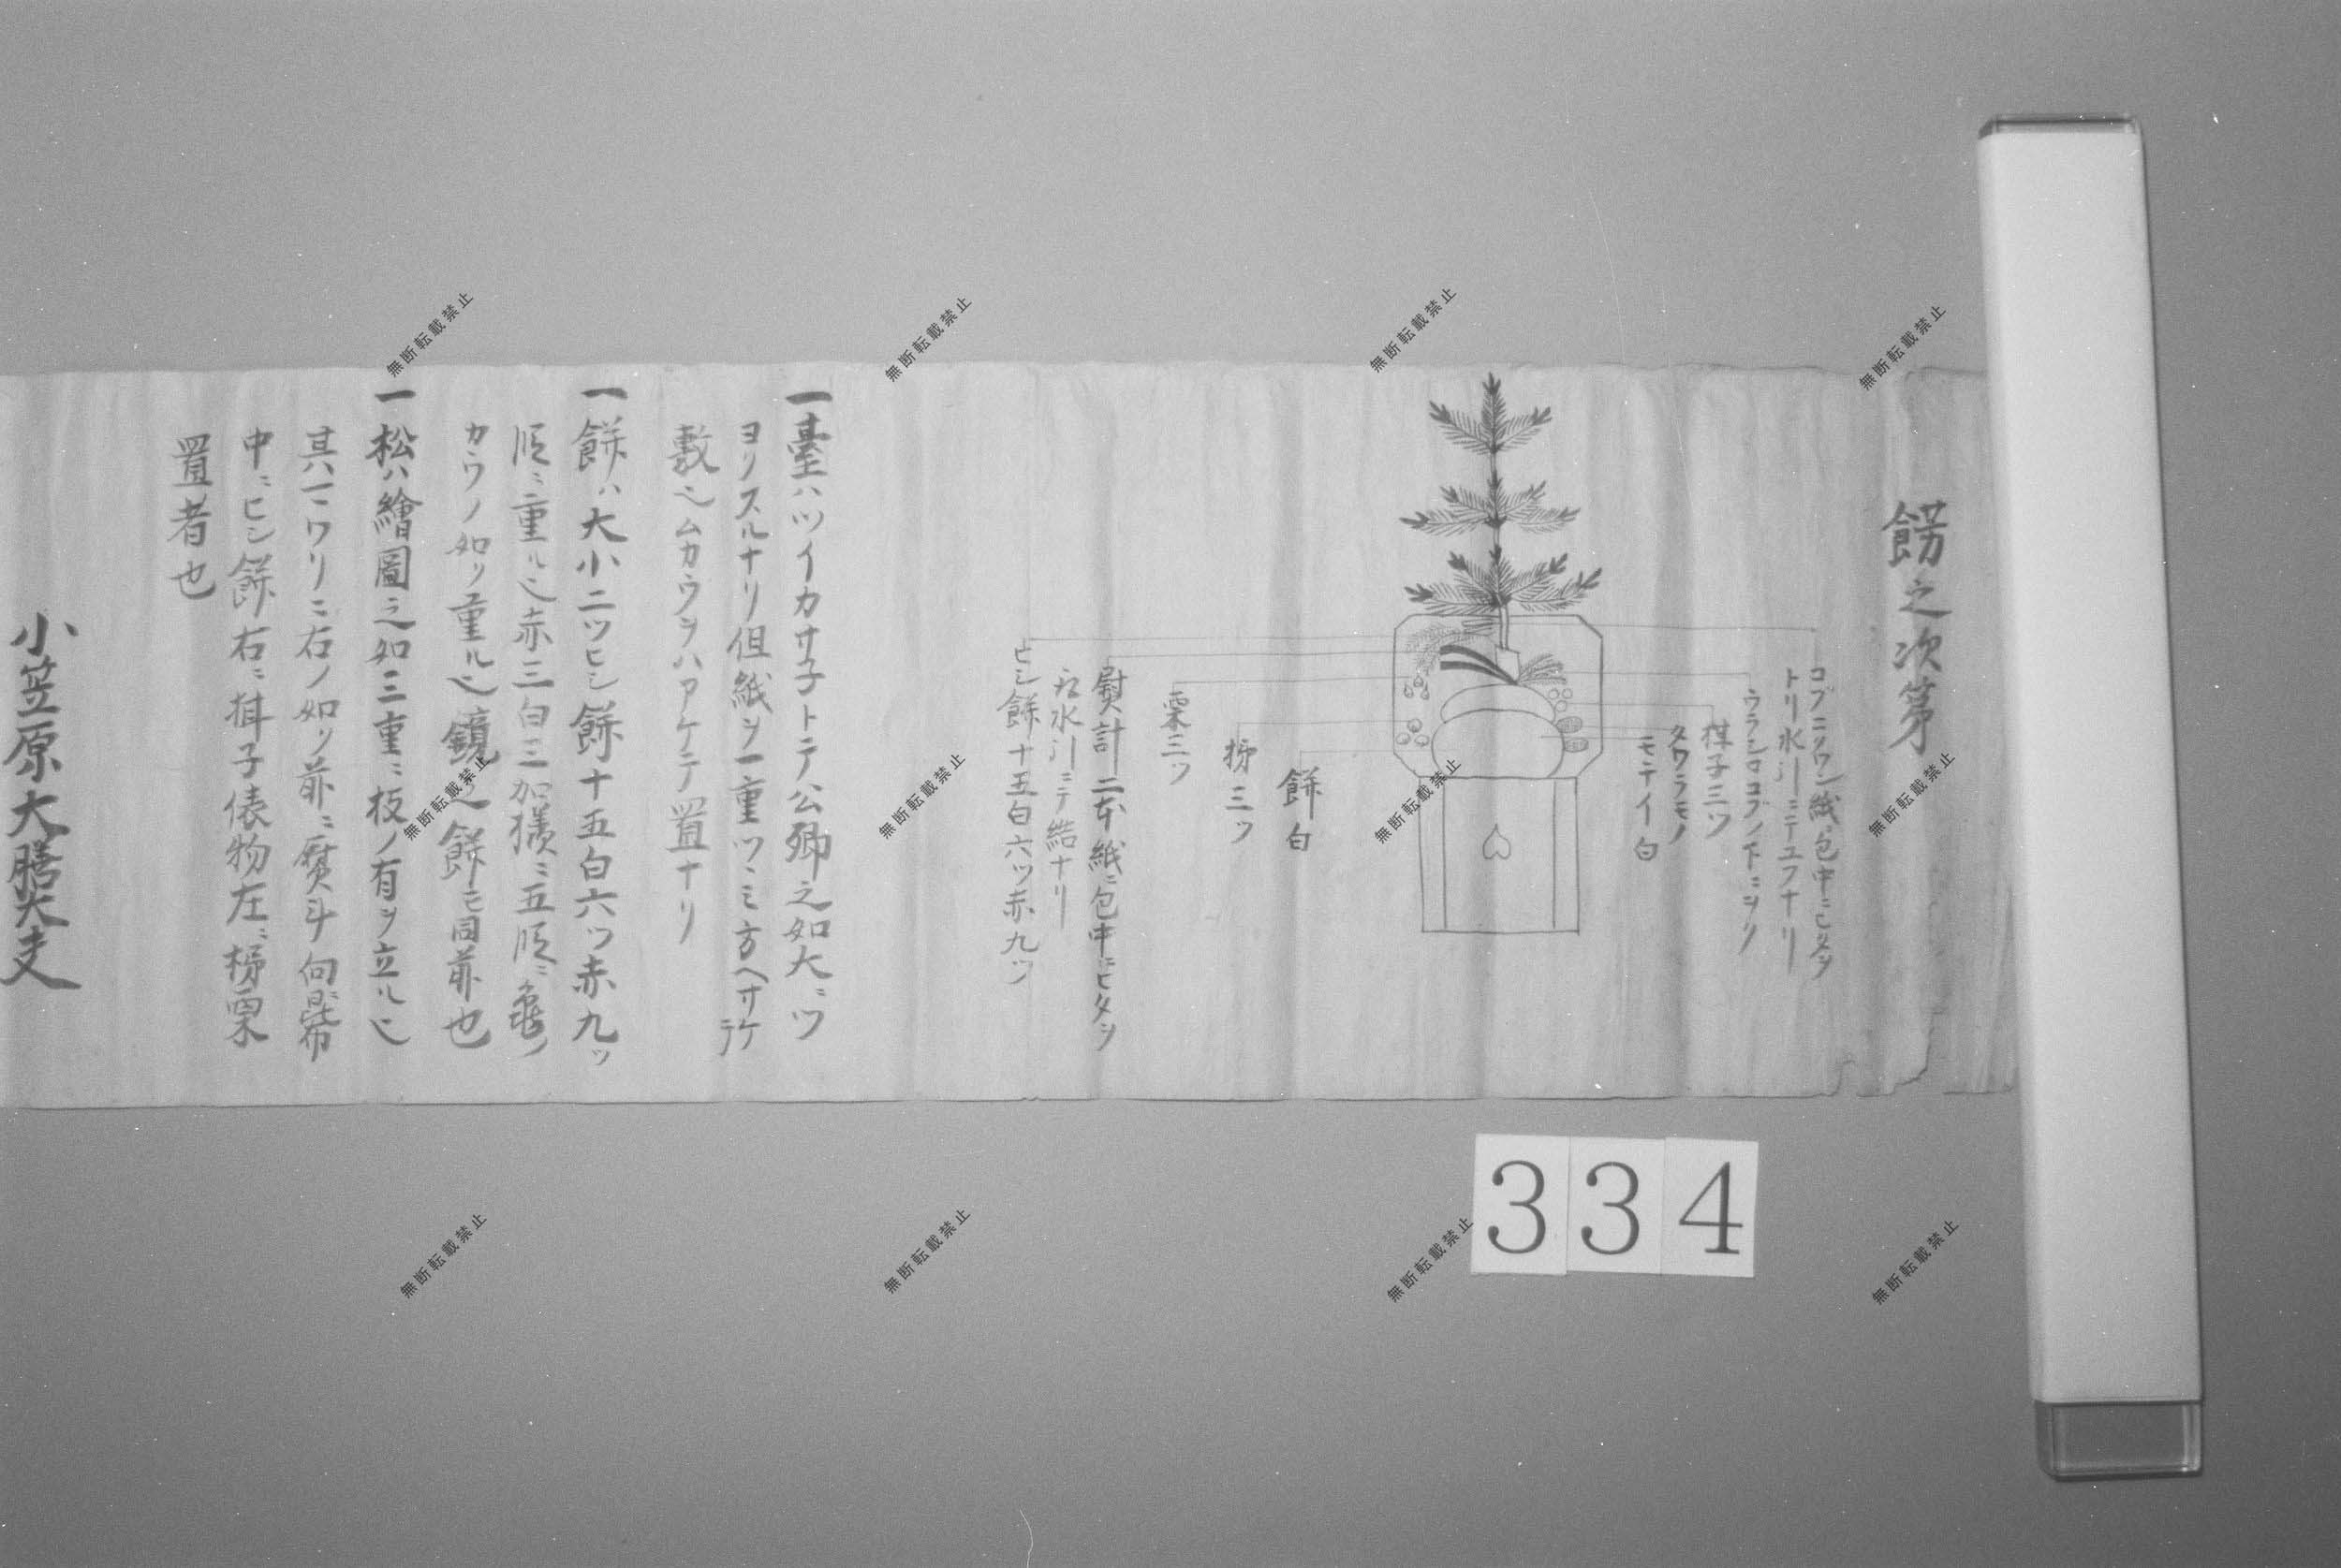 餝之次第
コブニワン紙ニ包中ニヒタヲ
トリ水引ニテユフナリ
ウランロコブノ下ニヲリ
椹子三ツ
タワラモノ
モテイ白
餅白
栁三ツ
栗三ツ
熨計二本紙ニ包中ニヒタヲ
水引ニテ結ナリ
ヒシ餅十五白六ツ赤九ツ
一臺ハツイカサ子トテ公卿之如大ニツ
ヨリスルナリ但紙ヲ一重ツヽミ方ヘサケテ
敷之ムカウヲハアケテ置ナリ
一餅ハ大小二ツヒシ餅十五白六ツ赤九ツ
順ニ重ル也赤三白三加様ニ五順ニ亀ノ
カウノ如ク重ル也鏡之餅モ同前也
一松ハ繪圖之如三重ニ枝ノ有ヲ立ル也
其ハマワリニ右ノ如ク前ニ熨斗向ニ昆布
中ニヒシ餅右ニ椹子俵物左ニ栁栗
置者也
小笠原大膳大夫
334
無断転載禁止
無断転載禁止
無断転載禁止
無断転載禁止
無断転載禁止
無断転載禁止
無断転載禁止
無断転載禁止
無断転載禁止
無断転載禁止
無断転載禁止
無断転載禁止